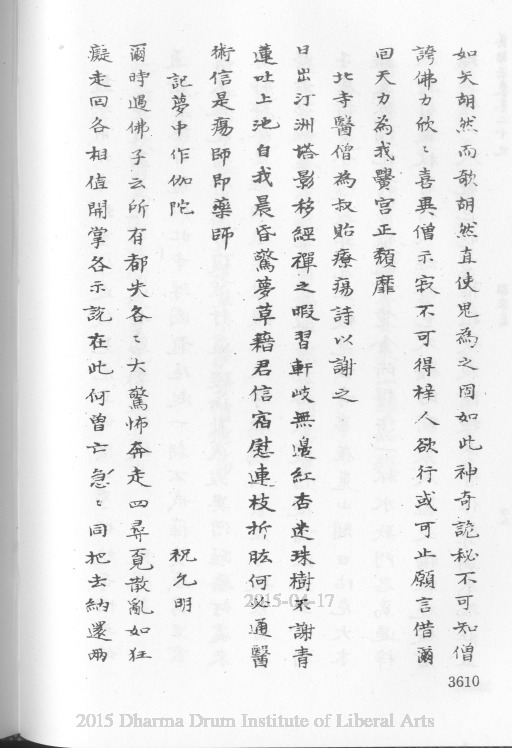 如矢胡然而欹胡然直使鬼為之固如此神奇詭秘不可知僧
誇佛力欣〻喜異僧示寂不可得梓人欲行或可止願言借爾
回天力為我黌宮正頹靡
北寺醫僧為叔貽療瘍詩以謝之
日出汀洲塔影移經禪之暇習軒岐無邊紅杏迷珠樹不謝青
蓮吐上池自我晨昏驚夢草藉君信宿慰連枝折肱何必通醫
術信是瘍師即藥師
記夢中作伽陀
祝允明
爾時過佛子云所有都失各〻大驚怖奔走四尋覓散亂如狂
癡走回各相值開掌各示說在此何曾亡急〻同把去納還兩
3610
2015-04-17
2015 Dharma Drum Institute of Liberal Arts